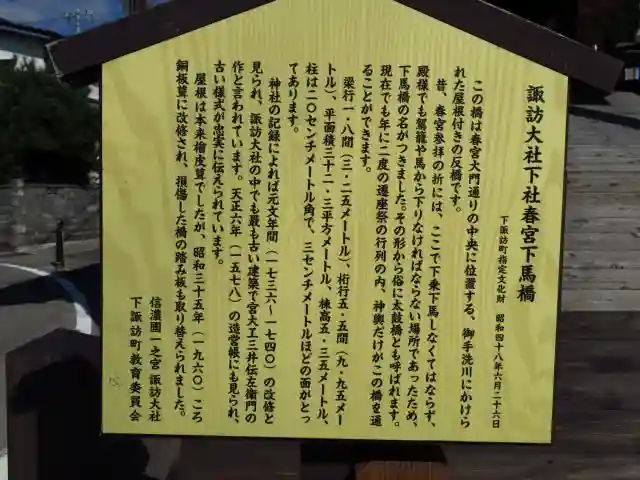 諏訪大社下社春宮下馬橋
下諏訪町指定文化財　昭和四十八年六月二十六日
この橋は春宮大門通りの中央に位置する、御手洗川にかけら
れた屋根付きの反橋です。
昔、春宮参拝の折には、ここで下乗下馬しなくてはならず、
殿様でも駕籠や馬から下りなければならない場所であったため、
下馬橋の名がつきました。その形から俗に太鼓橋とも呼ばれます。
現在でも年に二度の遷座祭の行列の内、神輿だけがこの橋を通
ることができます。
梁行一・八間（三・二五メートル）、桁行五・五間（九・九五メー
トル）、平面積三十二・三平方メートル、棟高五・三五メートル、
柱は二〇センチメートル角で、三センチメートルほどの面がとっ
てあります。
神社の記録によれば元文年間（一七三六～一七四〇）の改修と
見られ、諏訪大社の中でも最も古い建築で宮大工三井伝左衛門の
作と言われています。天正六年（一五七八）の造営帳にも見られ、
古い様式が忠実に伝えられています。
屋根は本来檜皮葺でしたが、昭和三十五年（一九六〇）ころ
銅板葺に改修され、損傷した橋の踏み板も取り替えられました。
信濃國一之宮諏訪大社
下諏訪町教育委員会